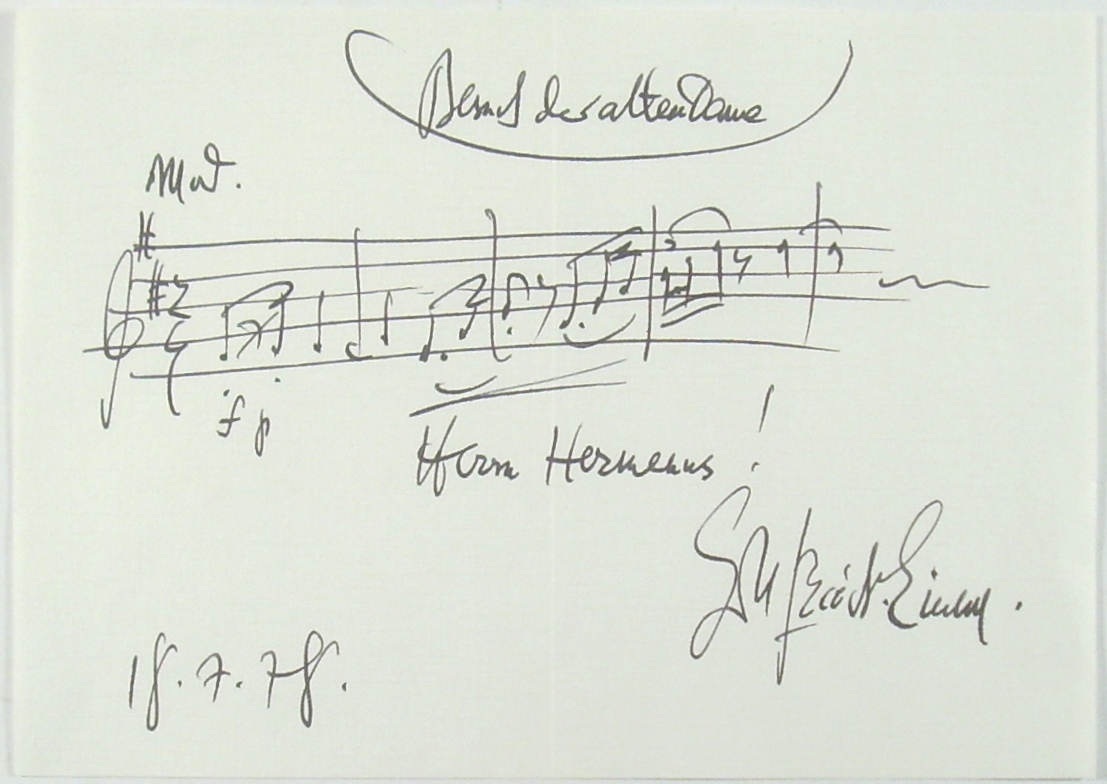 Besuch der alten Dame
Mod.
fp
Herrn Hermanns!
Gottfried v. Einem.
18.7.78.